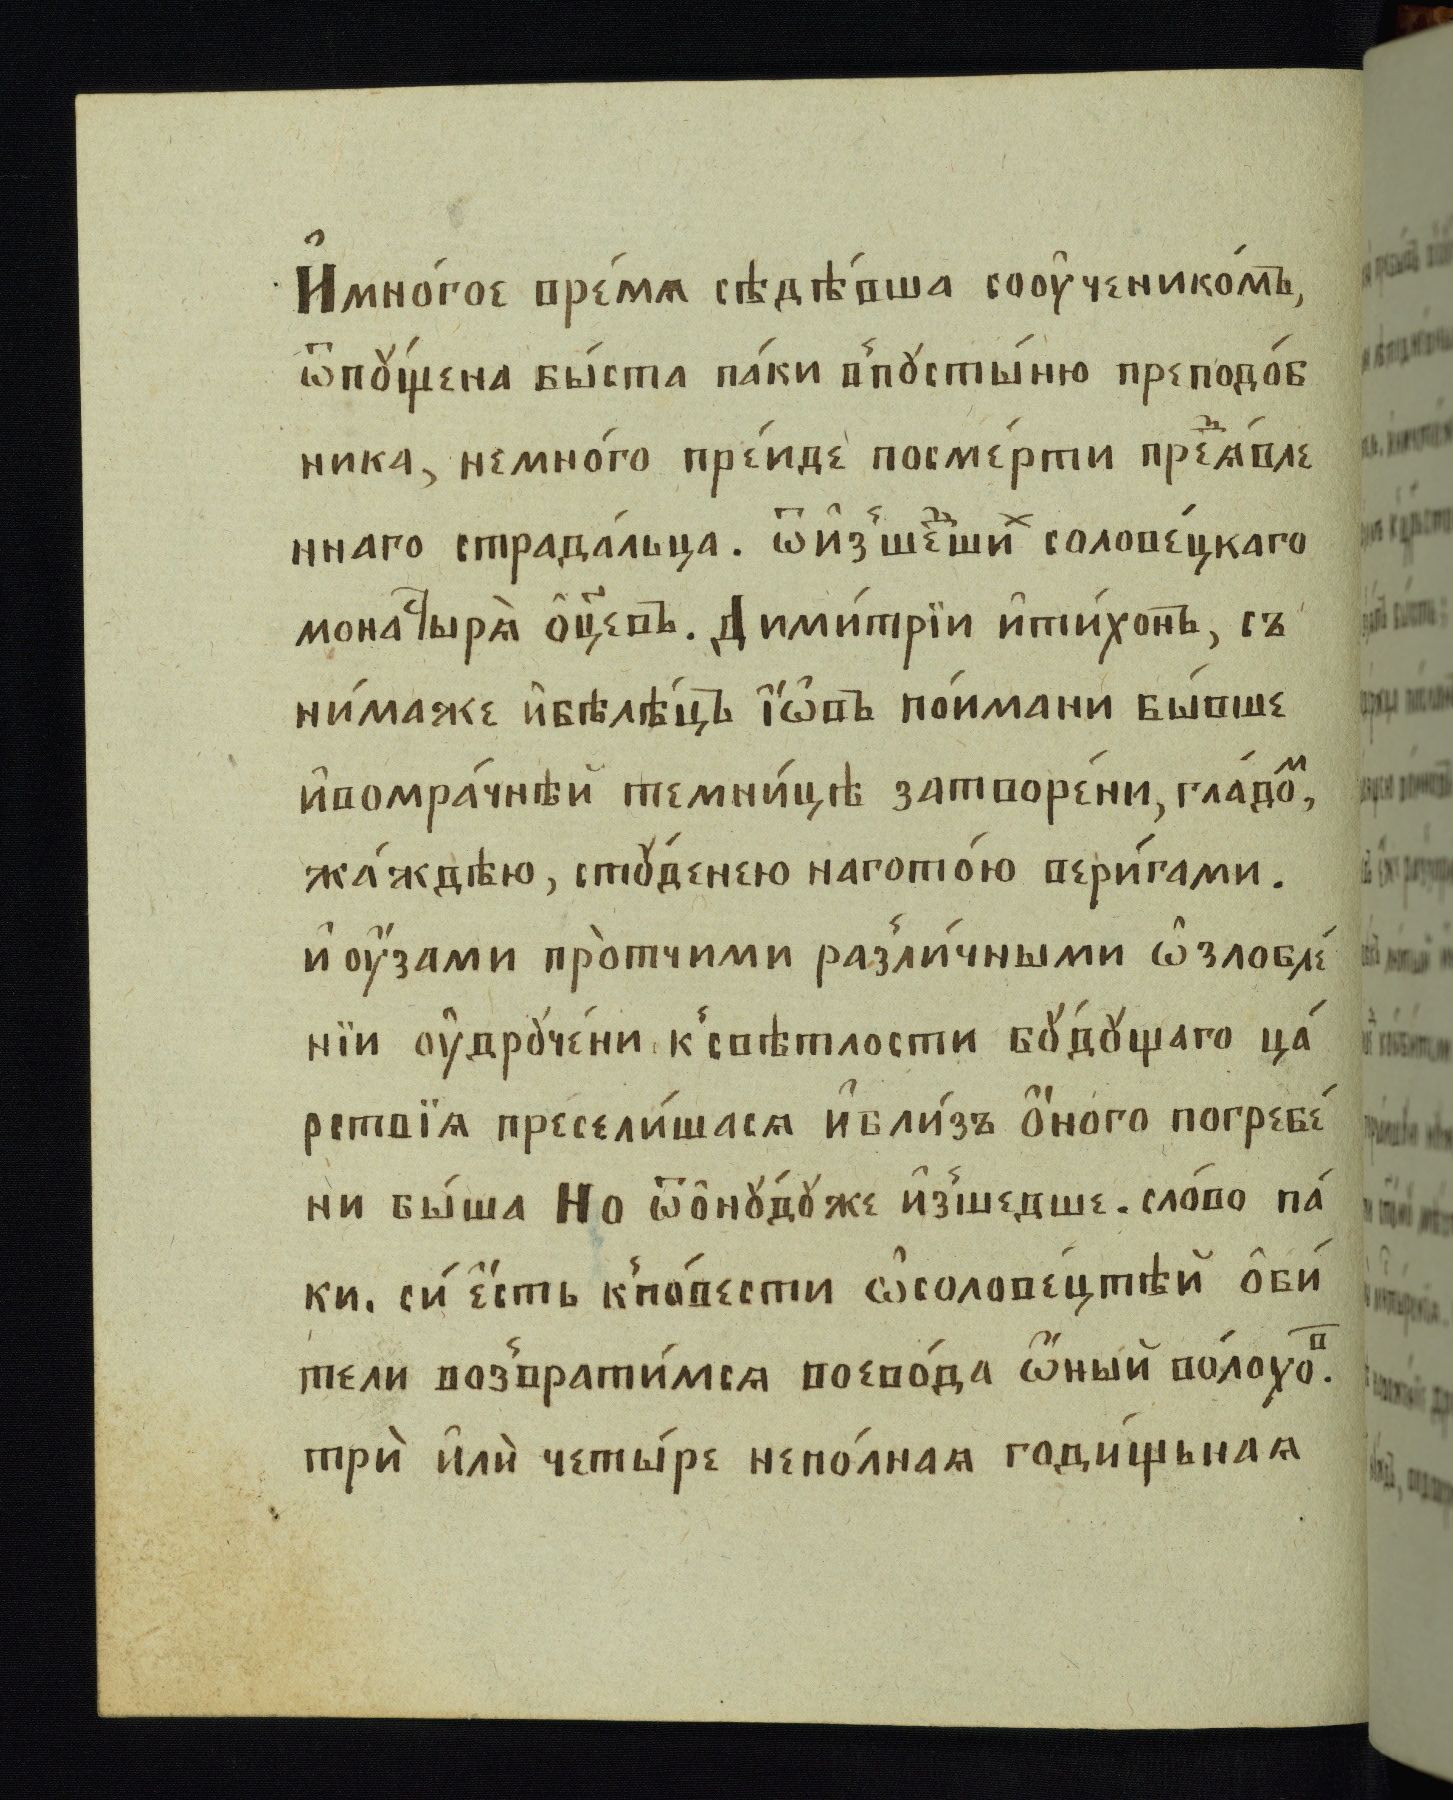 И҆мно́гое вре́мѧ сѣдѣ́вша сооу҆ченико́мъ,
ѿпꙋ́щена бы́ста па́ки в̾пꙋсты́ню преподо́б
ника, немно́го пре́иде посме́рти преⷤѧ́вле
ннаго страда́льца. ѿи҆з̾ше́ⷣшиⷯ солове́цкаго
монаⷭ҇тырѧ̀ о҆ц҃евъ. Дими́трїи и҆ти́хонъ, съ
ни́маже и҆бѣлѣ́цъ і҆́ѡ҆въ по́имани бы́вше
и҆вомра́чнѣй темни́цѣ затворе́ни, гла́доⷨ,
жа́ждѣю, стꙋ́денею наготою вери́гами.
и҆ оу҆́зами про̀тчими раз̾ли́чными ѡ҆злобле́
нїи оу҆дрꙋче́ни к̾свѣтлости бꙋ́дꙋщаго ца́
рствїѧ пресели́шасѧ и҆бли́зъ о҆́ного погребе́
ни бы́ша Но ѿо҆нꙋ́дꙋже и҆з̾шедше. сло́во па́
ки. си́ е҆́сть к̾по́вести ѡ҆солове́цтѣй о҆би́
тели воз̾врати́мсѧ воево́да ѡ҆́ный во́лохоⷡ.
трѝ и҆лѝ четы́ре непо́лнаѧ годи́щьнаѧ